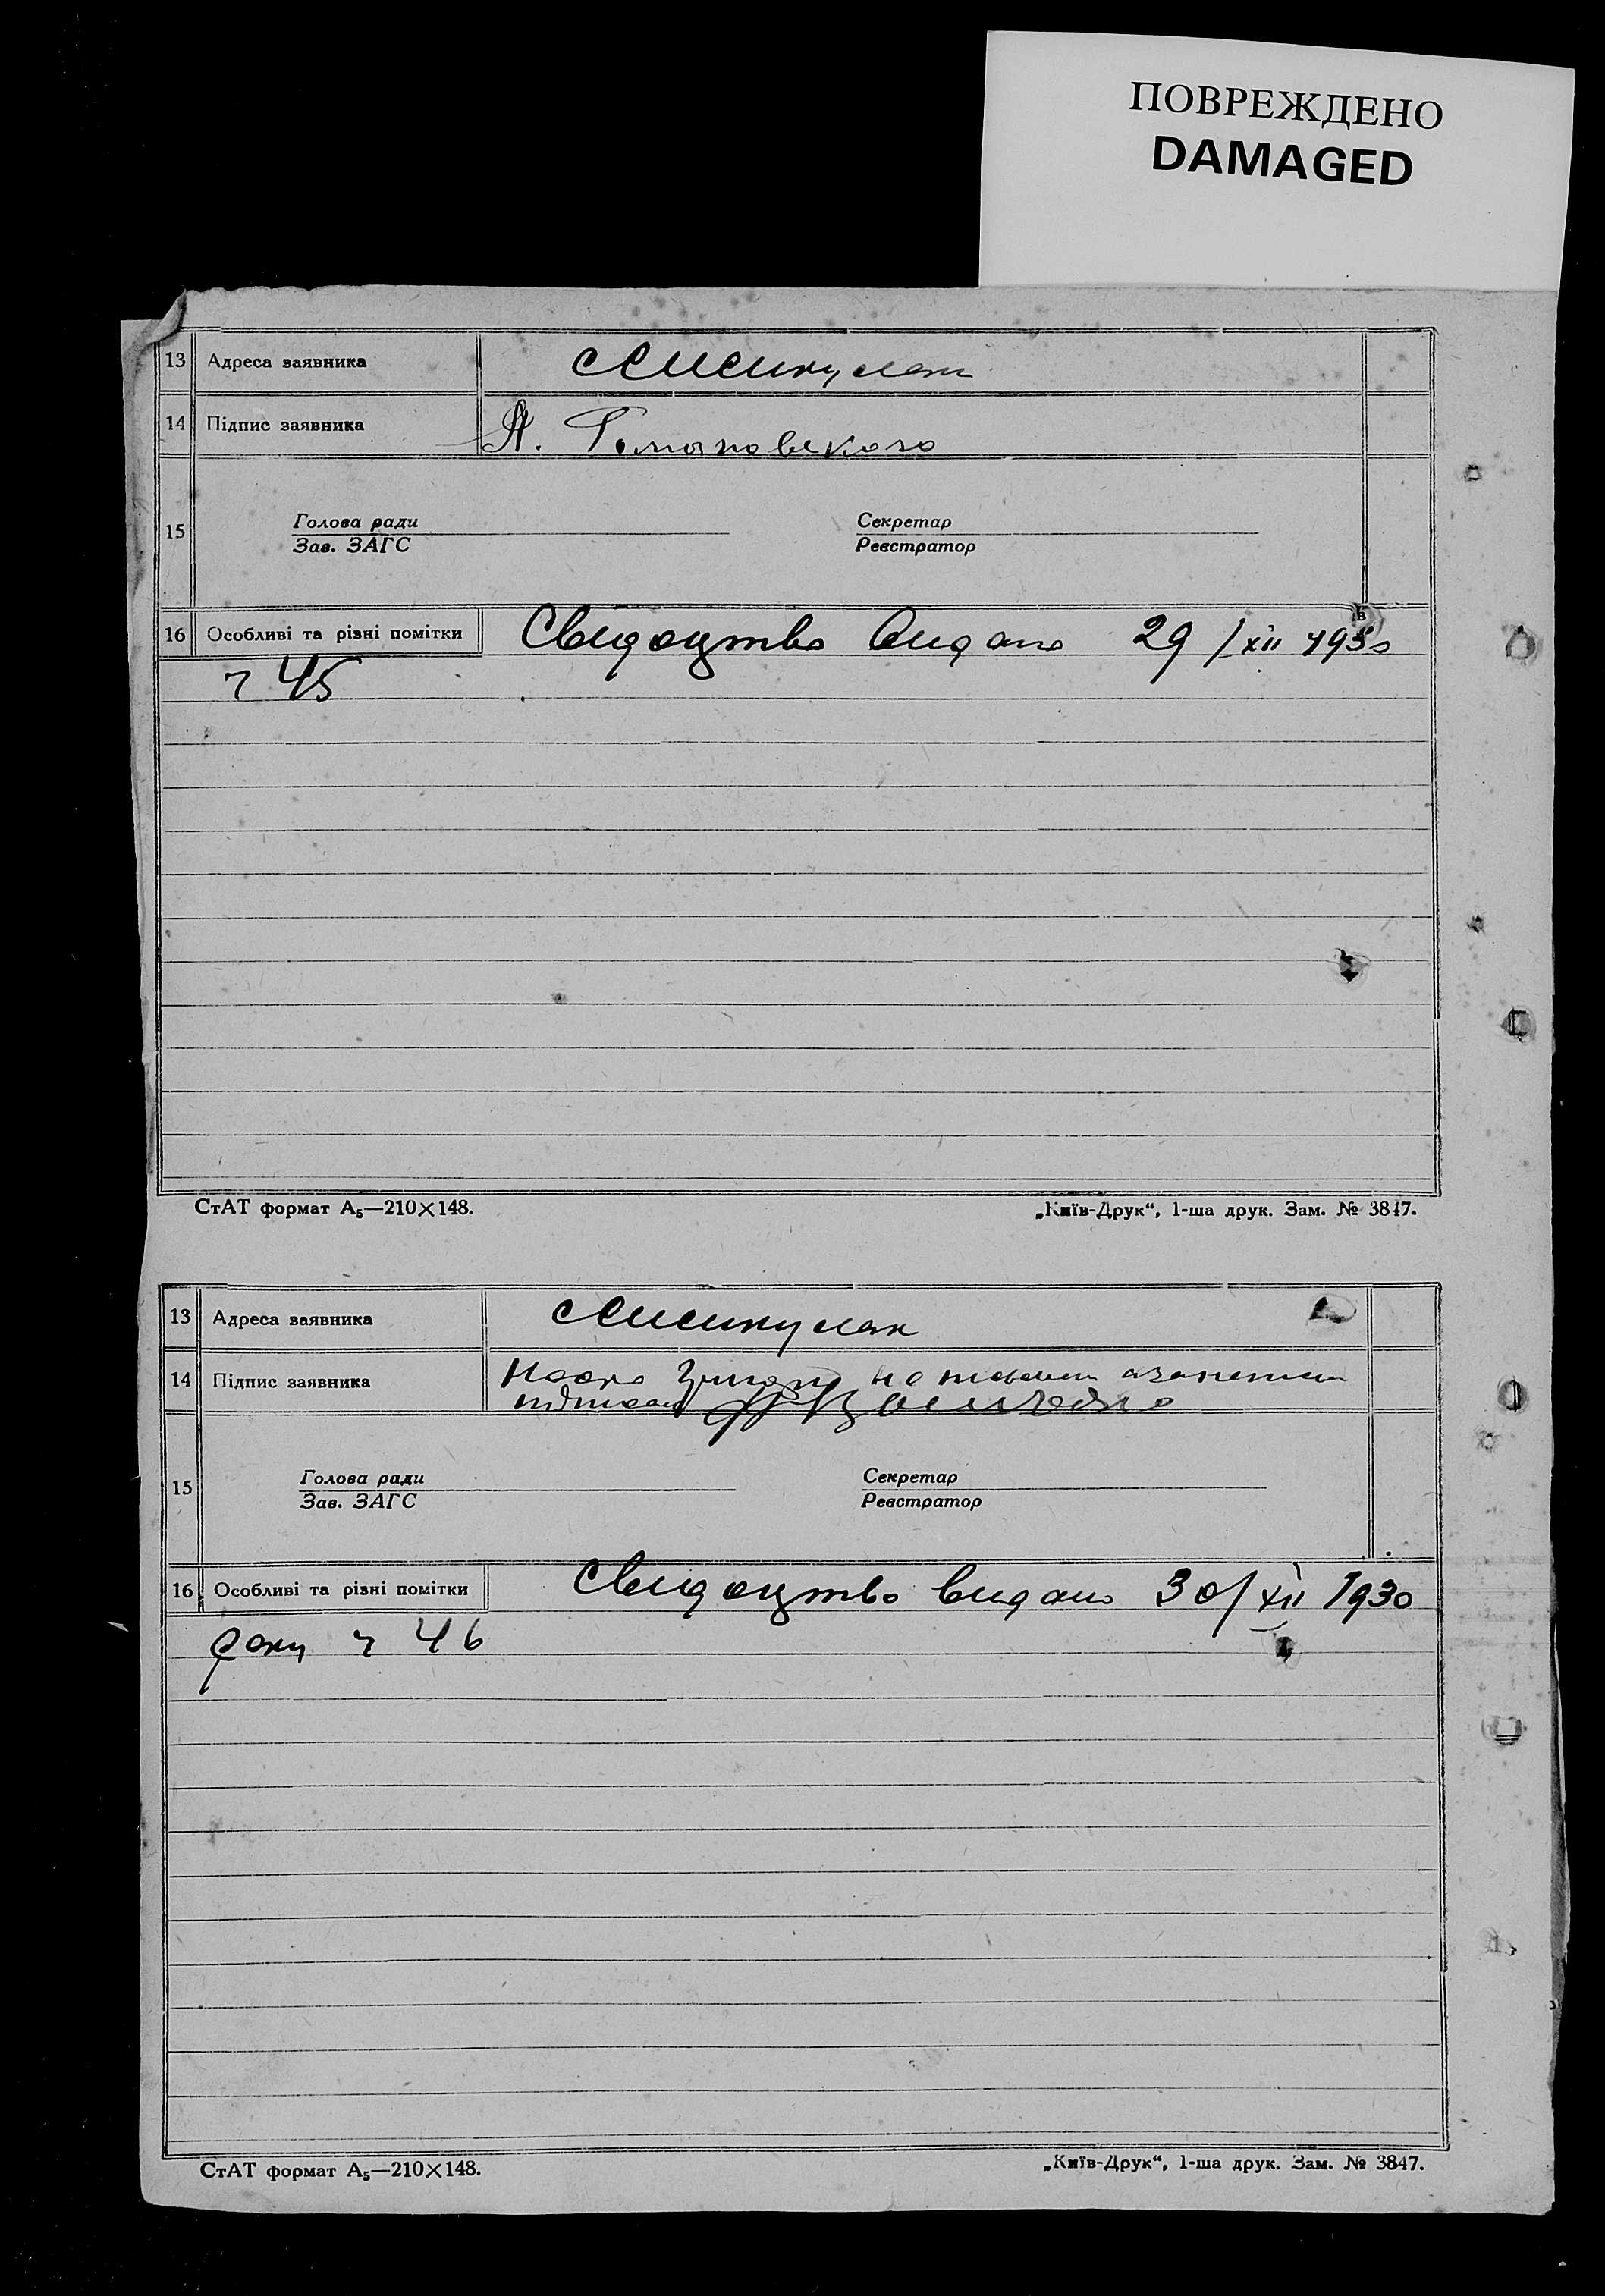 ПОВРЕЖДЕНО
DAMAGED
13 Адреса заявника
14 Підпис заявника
15 Голова ради Секретар
Зав. ЗАГС Реєстратор
16 Особливі та різні помітки Свидоцтво видано 29/XII 1930
ч 45
СтАТ формат А₅—210×148. „Київ-Друк“, 1-ша друк. Зам. № 3847.
13 Адреса заявника
14 Підпис заявника
15 Голова ради Секретар
Зав. ЗАГС Реєстратор
16 Особливі та різні помітки Свидоцтво видано 30/XII 1930
року ч 46
СтАТ формат А₅—210×148. „Київ-Друк“, 1-ша друк. Зам. № 3847.